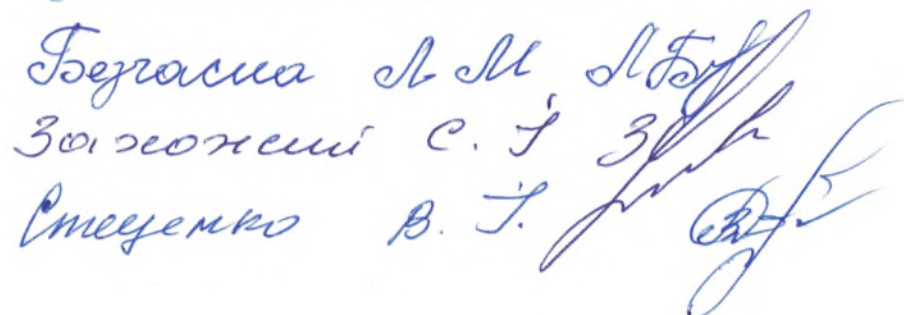 Безчасна Л М
Захожий С. І
Стеценко В. І.